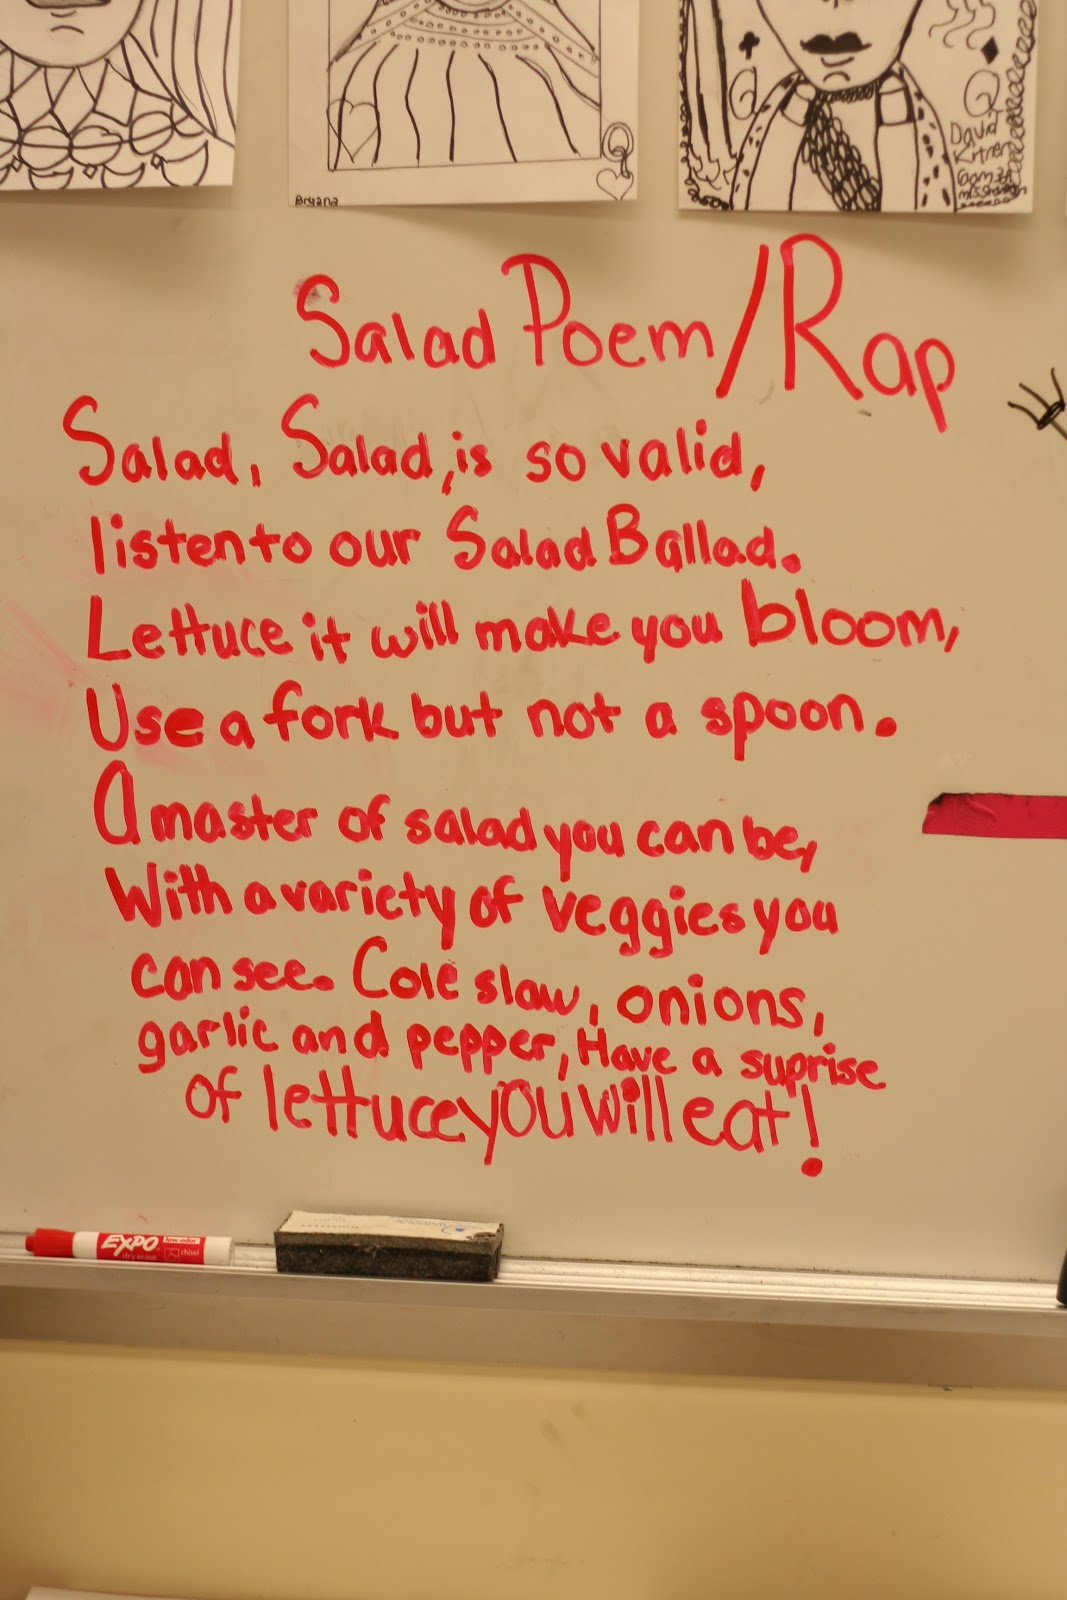 Bryana
Q
Q
Q
David
Salad Poem/Rap
Salad, Salad, is so valid,
listen to our Salad Ballad.
Lettuce it will make you bloom,
Use a fork but not a spoon.
A master of salad you can be,
With a variety of veggies you
can see. Cole slaw, onions,
garlic and pepper, Have a suprise
of lettuce you will eat!
EXPO
low odor
dry erase
chisel